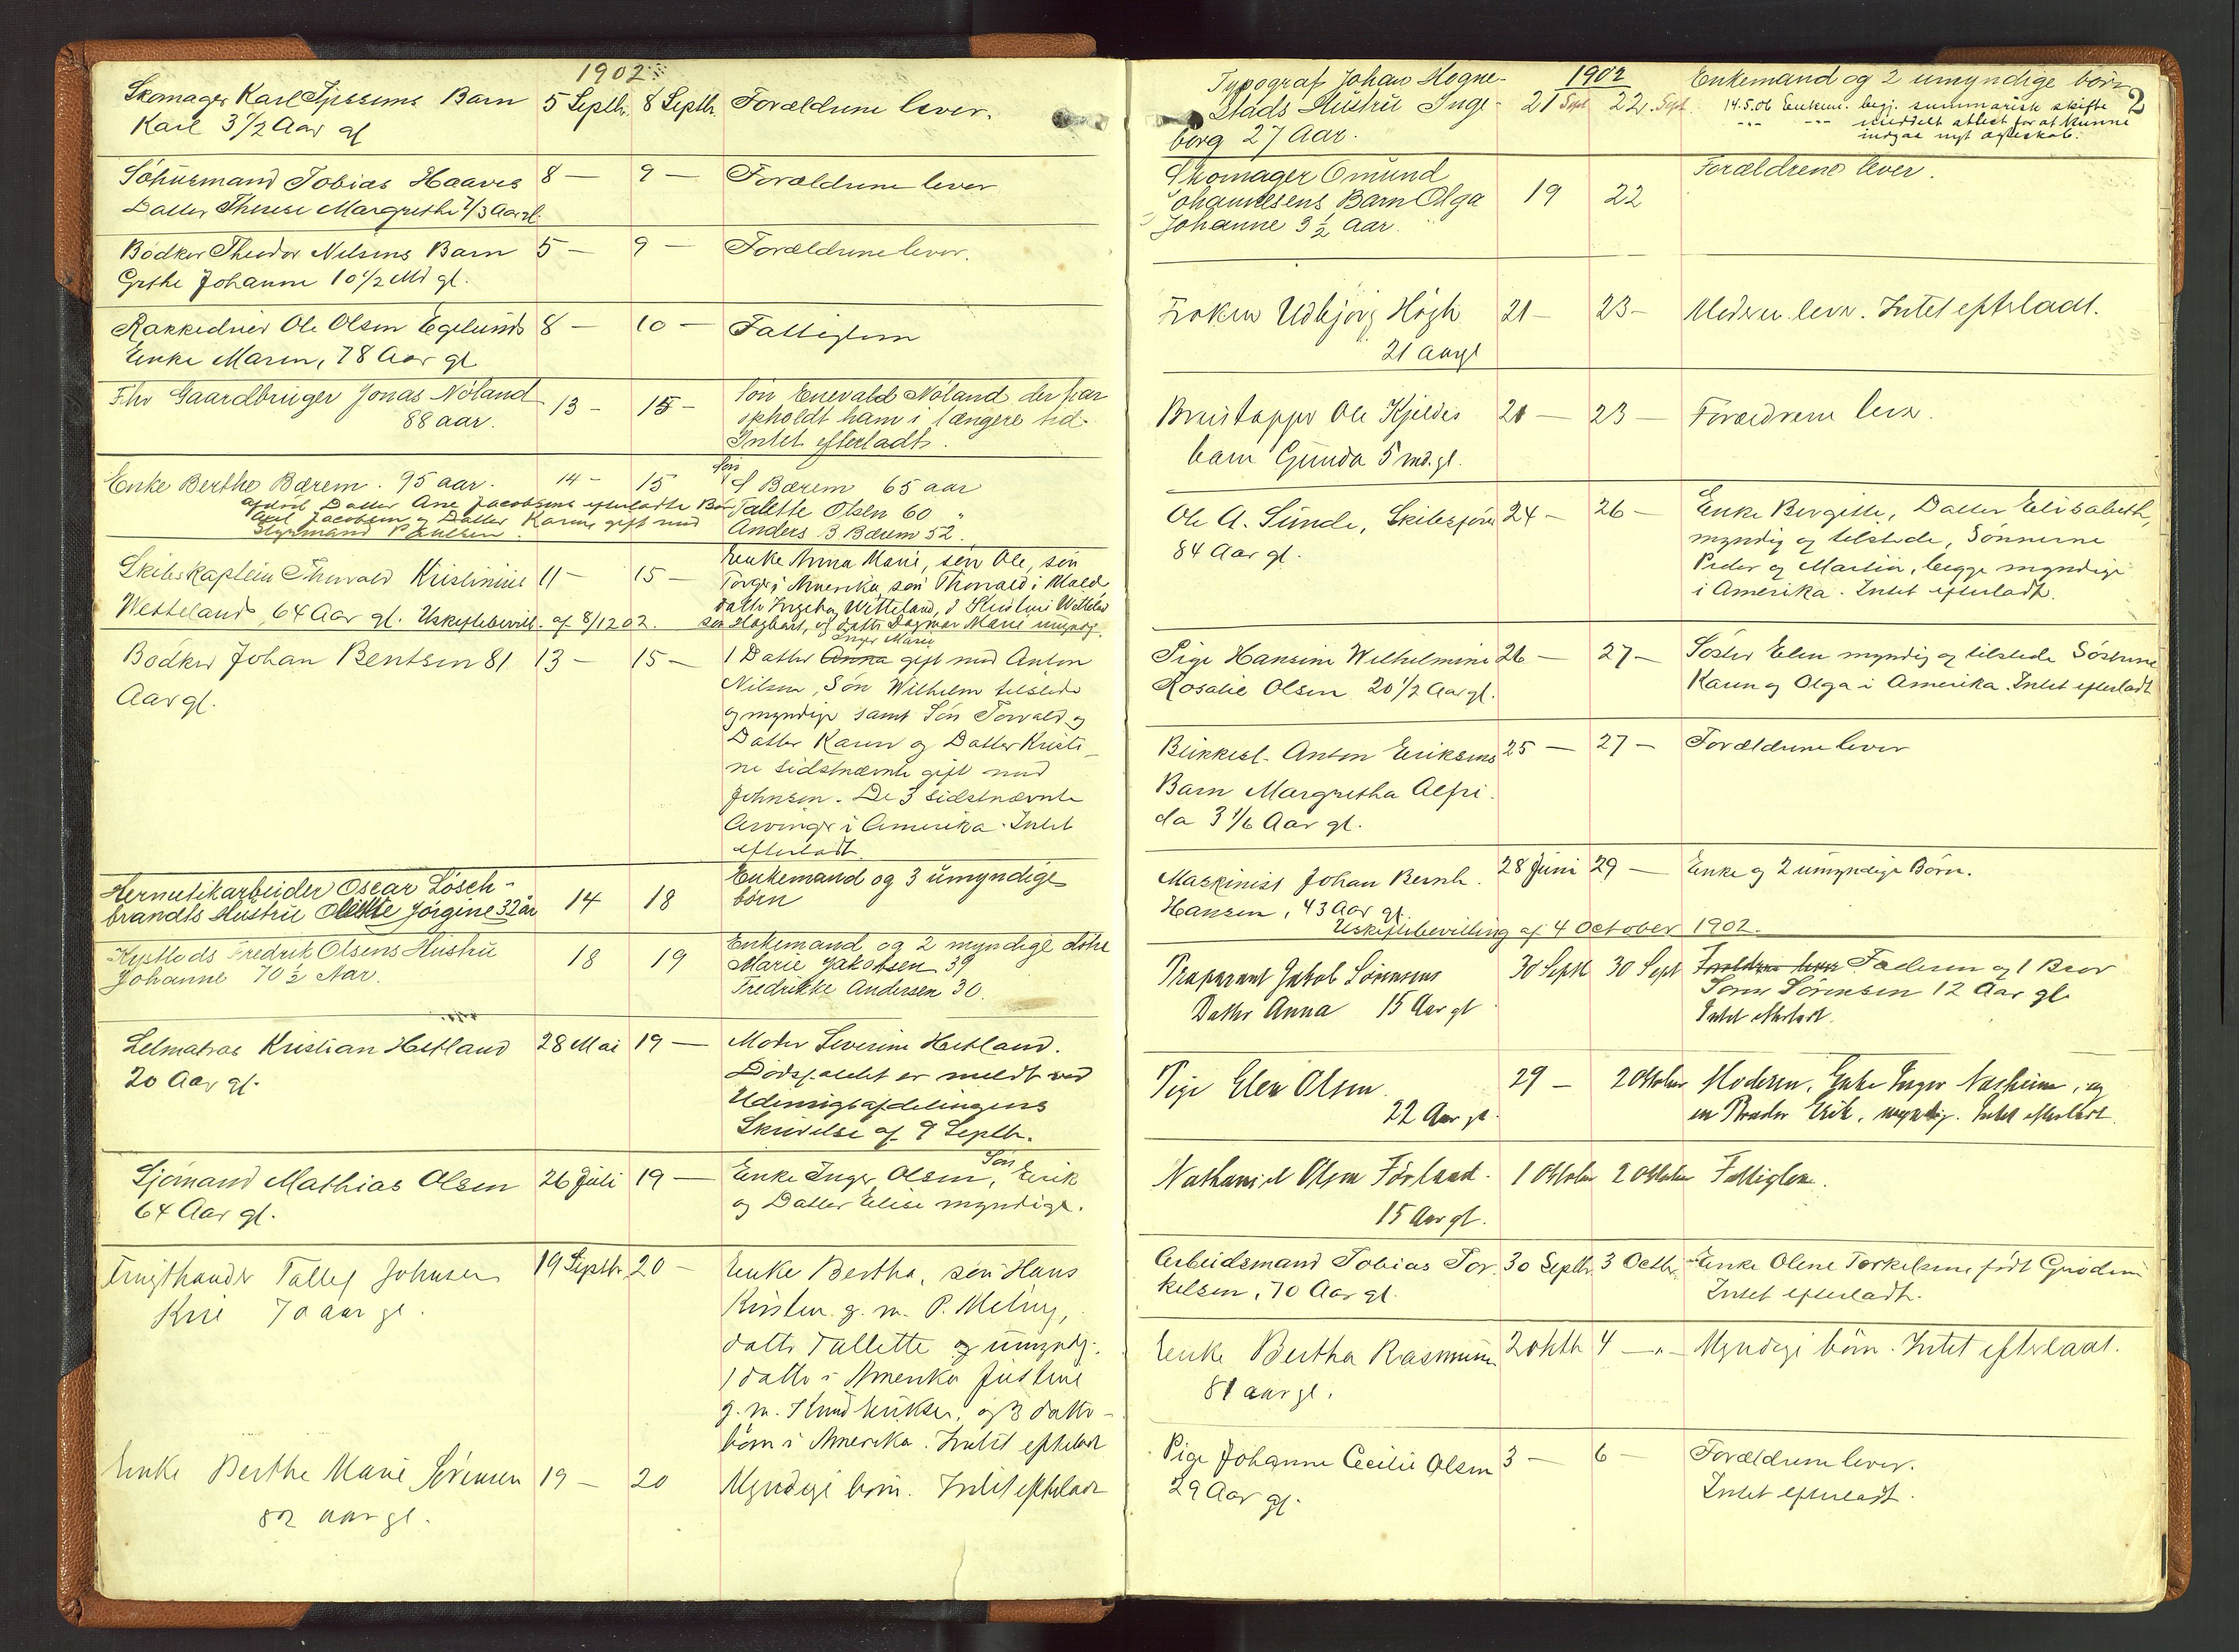 1902
Skomager Karl Barn 5 Septbr. 8 Septbr. Forældrene lever.
Karl 3 1/2 Aar gl
Tobias Haaves 8 — 9 — Forældrene lever
Datter Therese Margrethe Aar gl.
Bødker Theodor Nilsens Barn 5 — 9 — Forældrene lever.
Grethe Johanne 10 1/2 Md gl.
Ole Olsen Egelunds 8 — 10 — Fattiglem
Enke Maren, 78 Aar gl
Fhv Gaardbruger Jonas Nøland 13 - 15 - Søn Enevald Nøland der har
88 aar. opholdt ham i længere tid.
Intet efterladt.
Enke Berthe Bærem. 95 aar. 14 - 15 Søn
Bærem 65 aar
afdød Datter Ane Jacobsens efterladte Børn Talette Olsen 60 "
Axel Jacobsen og Datter Karine gift med Anders B Bærem 52.
Styrmand Paulsen.
Enke Anna Marie, søn Ole, søn
Skibskaptein Thorvald Kristinius 11 — 15 — Torger i Amerika, søn Thorvald i
Westeland, 64 Aar gl. Uskiftebevill. af 8/12 02.
datter Dagmar Marie umyndig.
Inger Marie
Bødker Johan Bentsen 81 13 — 15 — 1 Datter Anna gift med Anton
Aar gl. Nilsen, Søn Wilhelm tilstede
og myndige samt Søn Torvald og
Datter Karen og Datter Kristi-
ne sidstnævnte gift med
Johnsen. De 3 sidstnævnte
Arvinger i Amerika. Intet
efterladt.
Hermetikarbeider Oscar Løsch- Enkemand og 3 umyndige
brandts Hustru Olette Jørgine 32 år 14 18 børn
Kystlods Fredrik Olsens Hustru 18 19 Enkemand og 2 myndige døtre
Johanne 70 1/2 Aar. Marie Jakobsen 39
Fredrikke Andersen 30.
Letmatros Kristian Hetland 28 Mai 19 — Moder Severine Hetland.
20 Aar gl. Dødsfaldet er meldt ved
Udenrigsafdelingens
Skrivelse af 9 Septbr.
Sjømand Mathias Olsen 26 Juli 19 — Enke Inger Olsen, Søn Erik
64 Aar gl. og Datter Elise myndige.
Tallef Johnsen 19 Septbr. 20 — Enke Bertha, søn Hans
70 aar gl. Kirsten g. m. P. Meling,
datter Tallette og umyndg.
1 datter i Amerika Justine
g. m. Eriksen, og 3 datter-
børn i Amerika. Intet efterladt
Enke Berthe Marie Sørensen 19 — 20 Myndige børn. Intet efterladt
82 aar gl.
1902
2
Typograf Johan Hogne- Enkemand og 2 umyndige børn
stads Hustru Inge- 21 Sept 22. Sept. 14.5.06 Enkem. begj. summarisk skifte
borg 27 Aar. --- --- meddelt attest for at kunne
indgaa nyt ægteskab.
Skomager Omund Forældrene lever.
Johannesens Barn Olga 19 22
Johanne 3 1/2 Aar.
Frøken Udbjørg Høgh 21 — 23 — Moderen lever. Intet efterladt.
21 Aar gl
Ole Kjeldes 21 — 23 — Forældrene lever.
barn Gunda 5 md. gl.
Ole A. Sunde, Skibsfører 24 — 26 — Enke Bergitte, Datter Elisabeth,
84 Aar gl. myndig og tilstede, Sønnerne
Peder og Martin, begge myndige
i Amerika. Intet efterladt.
Pige Hansine Wilhelmine 26 — 27 — Søster Elen myndig og tilstede Søstrene
Rosalie Olsen 20 1/2 Aar gl. Karen og Olga i Amerika. Intet efterladt
Blikkesl. Anton Eriksens 25 — 27 — Forældrene lever
Barn Margretha Alfri-
da 3 1/6 Aar gl.
Maskinist Johan Bernh. 28 Juni 29 — Enke og 2 umyndige Børn.
Hansen, 43 Aar gl.
Uskiftebevilling af 4 October 1902.
Præparant Jakob Sørensens 30 Sept 30 Sept Forældrene lever Faderen og 1 Bror
Datter Anna 15 Aar gl Sørensen 12 Aar gl.
Intet efterladt.
Pige Elen Olsen 29 — 2 Oktober Moderen, Enke Inger Næsheim, og
22 Aar gl. en Broder Erik, myndig. Intet efterladt.
Nathaniel Olsen Førland. 1 Oktober 2 Oktober Fattiglem.
15 Aar gl.
Arbeidsmand Tobias Tor- 30 Septbr. 3 Octbr. Enke Olene Torkelsen født Grødem
kelsen, 70 Aar gl. Intet efterladt.
Enke Bertha Rasmussen 2 oktb 4 —"— Myndige børn. Intet efterladt.
81 aar gl.
Pige Johanne Cecilie Olsen 3 — 6 — Forældrene lever.
29 Aar gl. Intet efterladt.